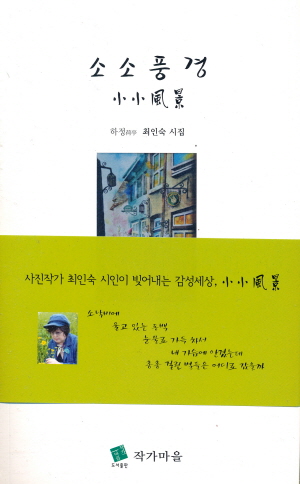 소소풍경
小小風景
하정 최인숙 시집
사진작가 최인숙 시인이 빚어내는 감성세상, 小小風景
소낙비에
울고 있는 동백
눈물로 가득 차서
내 가슴에 안겼는데
홍홍 걸린 백동은 어디로 갔을까
도서출판 작가마을